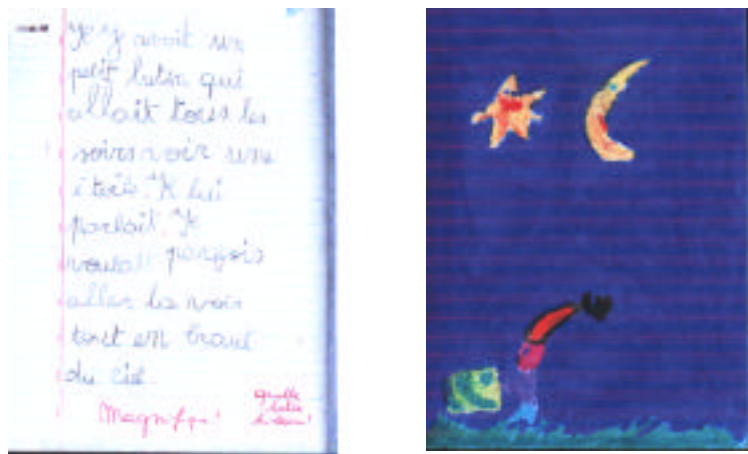 Il y avait un
petit lutin qui
allait tous les
soirs voir une
étoile. Il lui
parlait. Il
voulait parfois
aller la voir
tout en haut
du ciel
Magnifique !
Quelle
belle